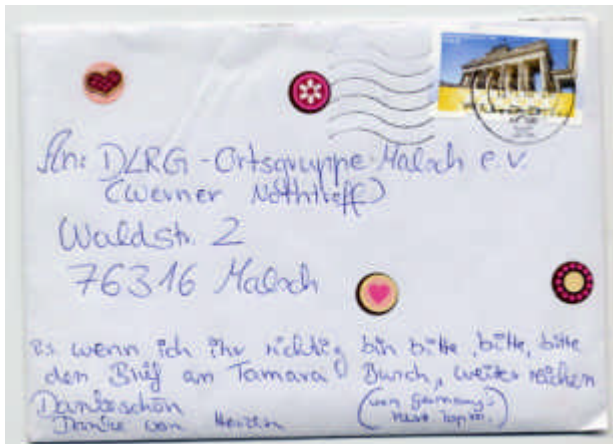 An: DLRG-Ortsgruppe Malsch e.V.
(Werner Nothheff)
Waldstr. 2
76316 Malsch
Ps wenn ich ihr richtig bin bitte, bitte, bitte
den Brif an Tamara Burch, weiter reichen
Dankeschön
(von Germany's
next Topm.)
Danke von